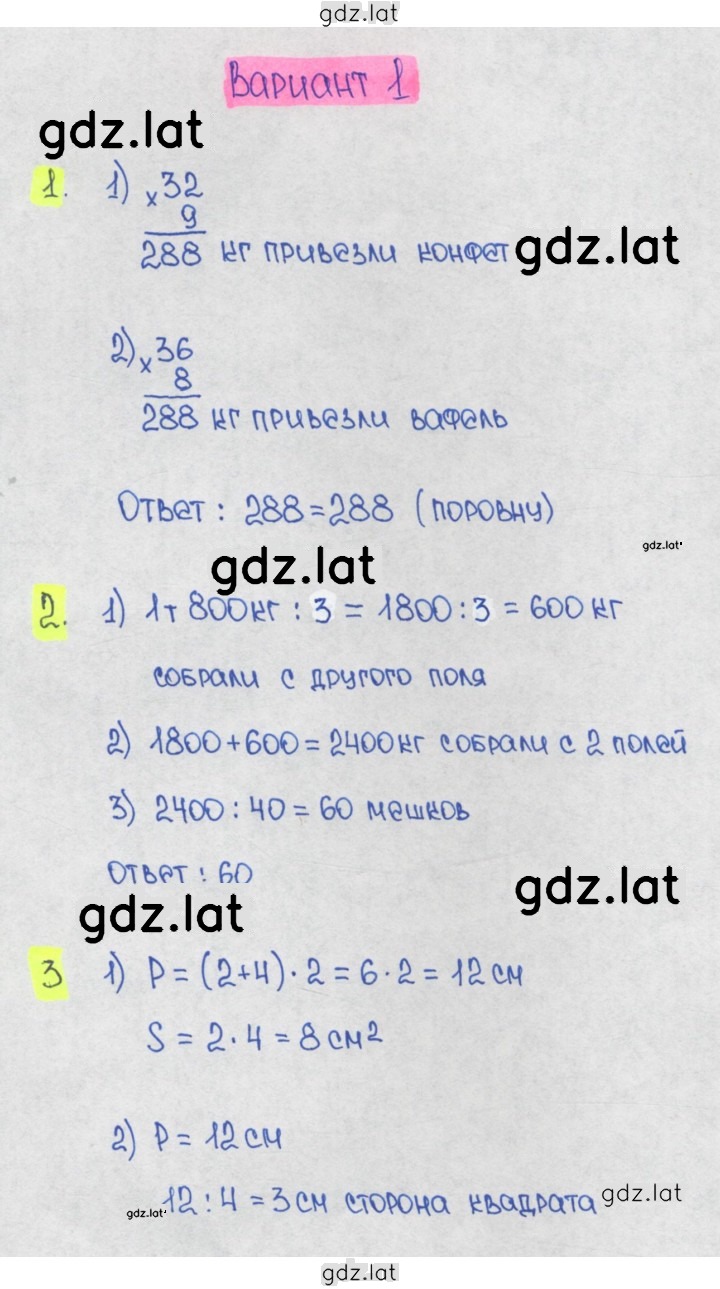 gdz.lat
Вариант 1
gdz.lat
1. 1) × 32
9
288 кг привезли конфет gdz.lat
2) × 36
8
288 кг привезли вафель
Ответ : 288 = 288 (поровну)
gdz.lat
gdz.lat
2. 1) 1т 800кг : 3 = 1800 : 3 = 600 кг
собрали с другого поля
2) 1800 + 600 = 2400кг собрали с 2 полей
3) 2400 : 40 = 60 мешков
Ответ : 60
gdz.lat
gdz.lat
3 1) P = (2+4) · 2 = 6 · 2 = 12 см
S = 2 · 4 = 8 см²
2) P = 12 см
gdz.lat 12 : 4 = 3 см сторона квадрата gdz.lat
gdz.lat